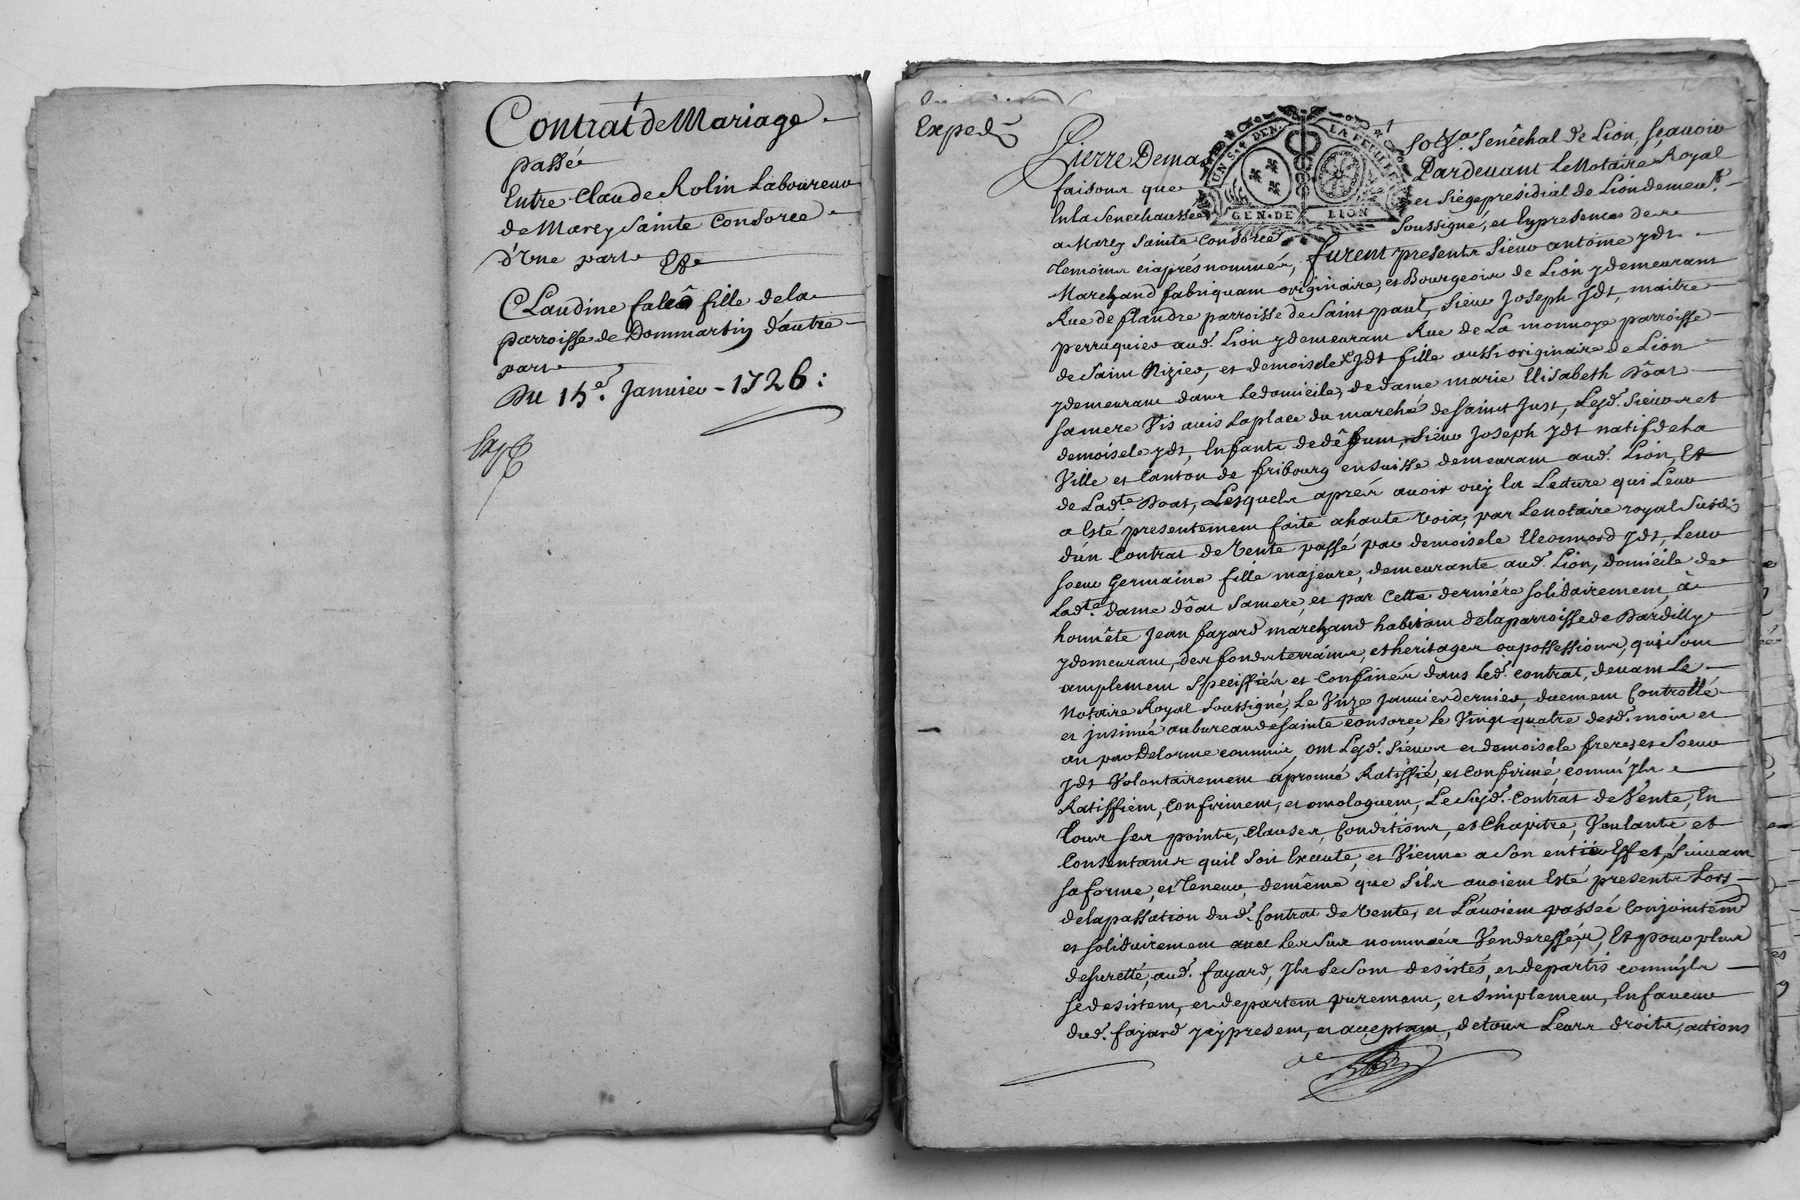 Contrat de Mariage
passée
Entre Claude Rolin Laboureur
de Marcy Sainte Consorce
d'Une part Et
Claudine fille de la
parroisse de Dommartin d'autre
part
Du 15e. Janvier - 1726 :
Exped
Pierre Dema Sol Sénéchal de Lion, sçauoir
faisons que Pardeuant Le Notaire Royal
En la Senechaussee et Siége présidial de Lion demeut.
a Marcy Sainte Consorce Soussigné, et En presence des
temoins ciaprés nommés, furent presents Sieur antoine ydt
Marchand fabriquant originaire, et Bourgeois de Lion y demeurant
Rue de flandre parroisse de Saint paul, Sieur Joseph Jdt, maitre
perruquier aud. Lion y demeurant Rue de La monnoye parroisse
de Saint Nizier, et demoiselle Jdt fille aussi originaire de Lion
y demeurant dans Le domicile, de dame marie Elisabeth Dôat
sa mere Vis auis La place du marché de Saint Just, Lesd. Sieurs et
demoisele ydt, Enfants de défunt, Sieur Joseph ydt natif de la
Ville et Canton de fribourg en Suisse demeurant aud. Lion, Et
de Lade. Doat, Lesquels aprés auoir ouy la Lecture qui Leur
a Esté presentement faite a haute Voix, par Le notaire royal Susdt.
d'un Contrat de Vente passé par demoisele Eleonnord ydt, Leur
soeur Germaine fille majeure, demeurante aud. Lion, domicile de
Ladte. dame dôat Sa mere, et par Cette derniére solidairement, à
honnéte Jean fayard marchand habitant de la parroisse de Dardilly
y demeurant, des fonds terrains, et heritages ou possessions, qui sont
amplement Speciffiés et Confinés dans Led. contrat, deuant Le
Notaire Royal Soussigné, Le Unze Januier dernier, duement Controllé
et jnsinué au bureau de Sainte Consorce Le Vingt quatre desd. mois et
an par Delorme commis, ont Lesd. Sieurs et demoisele freres et Soeur
ydt Volontairement aprouué Ratiffié, et Confirmé, comm'Jls
Ratiffient, Confirment, et omologuent, Le Susd. Contrat de Vente, En
tous ses points, Clauses, Conditions, et Chapitre, Voulants et
Consentants quil Soit Executé, et Vienne a Son entier Effet, Suiuant
sa forme, et teneur, de méme que S'ils auoient Esté presents Lors
de la passation dud. Contrat de Vente, et L'auoient passée Conjointemt
et solidairement auec Les Sus nommées Venderesses, Et pour plus
de Surette, aud. fayard, Jls Se Sont desistés, et departis comm'yls
Se desistent, et departent purement, et Simplement, En faueur
dud. fayard y cy present, et acceptant, de tous Leurs droits, actions